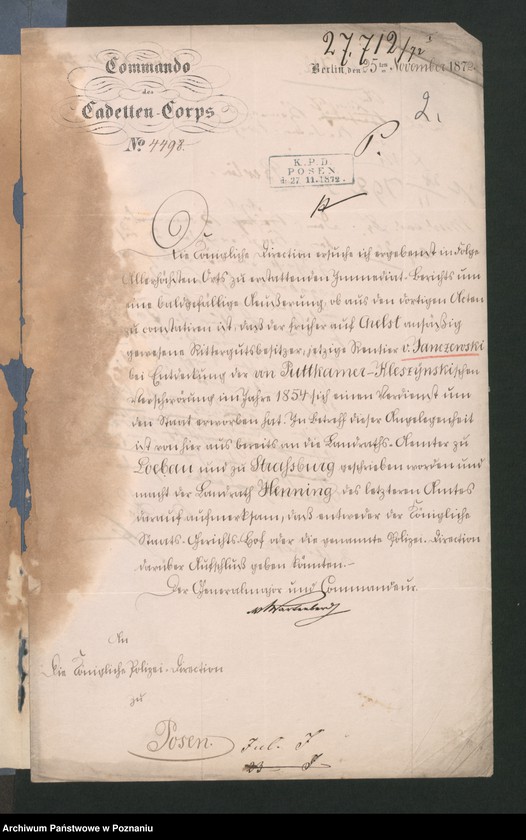 27,712/72
Commando
des
Cadetten-Corps
Berlin, den 25ten November 1872.
2.
No 4498.
P.
K.P.D.
POSEN
d. 27.11.1872.
Die Königliche Direction ersuche ich ergebenst in Folge
Allerhöchsten Orts zu erstattenden Immediat-Berichts um
eine baldgefällige Aeußerung, ob aus den dortigen Acten
zu constatiren ist, daß der früher auf Aulst ansäßig
gewesene Rittergutsbesitzer, jetzige Rentier v. Janczewski
bei Entdeckung der von Puttkamer-Kleszynskischen
Verschwörung im Jahre 1854 sich einen Verdienst um
den Staat erworben hat. In Betreff dieser Angelegenheit
ist von hier aus bereits an die Landraths-Aemter zu
Loebau und zu Straßburg geschrieben worden und
macht der Landrath Henning des letzteren Amtes
darauf aufmerksam, daß entweder der Königliche
Staats-Gerichts-Hof oder die genannte Polizei-Direction
darüber Aufschluß geben könnten.-
Der Generalmajor und Commandeur.
v Wartenberg
An
Die Königliche Polizei-Direction
zu
Posen.
Archiwum Państwowe w Poznaniu